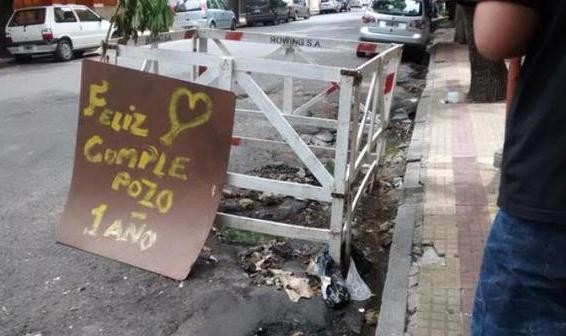 ROWING S.A.
FELIZ
CUMPLE
POZO
1 AÑO